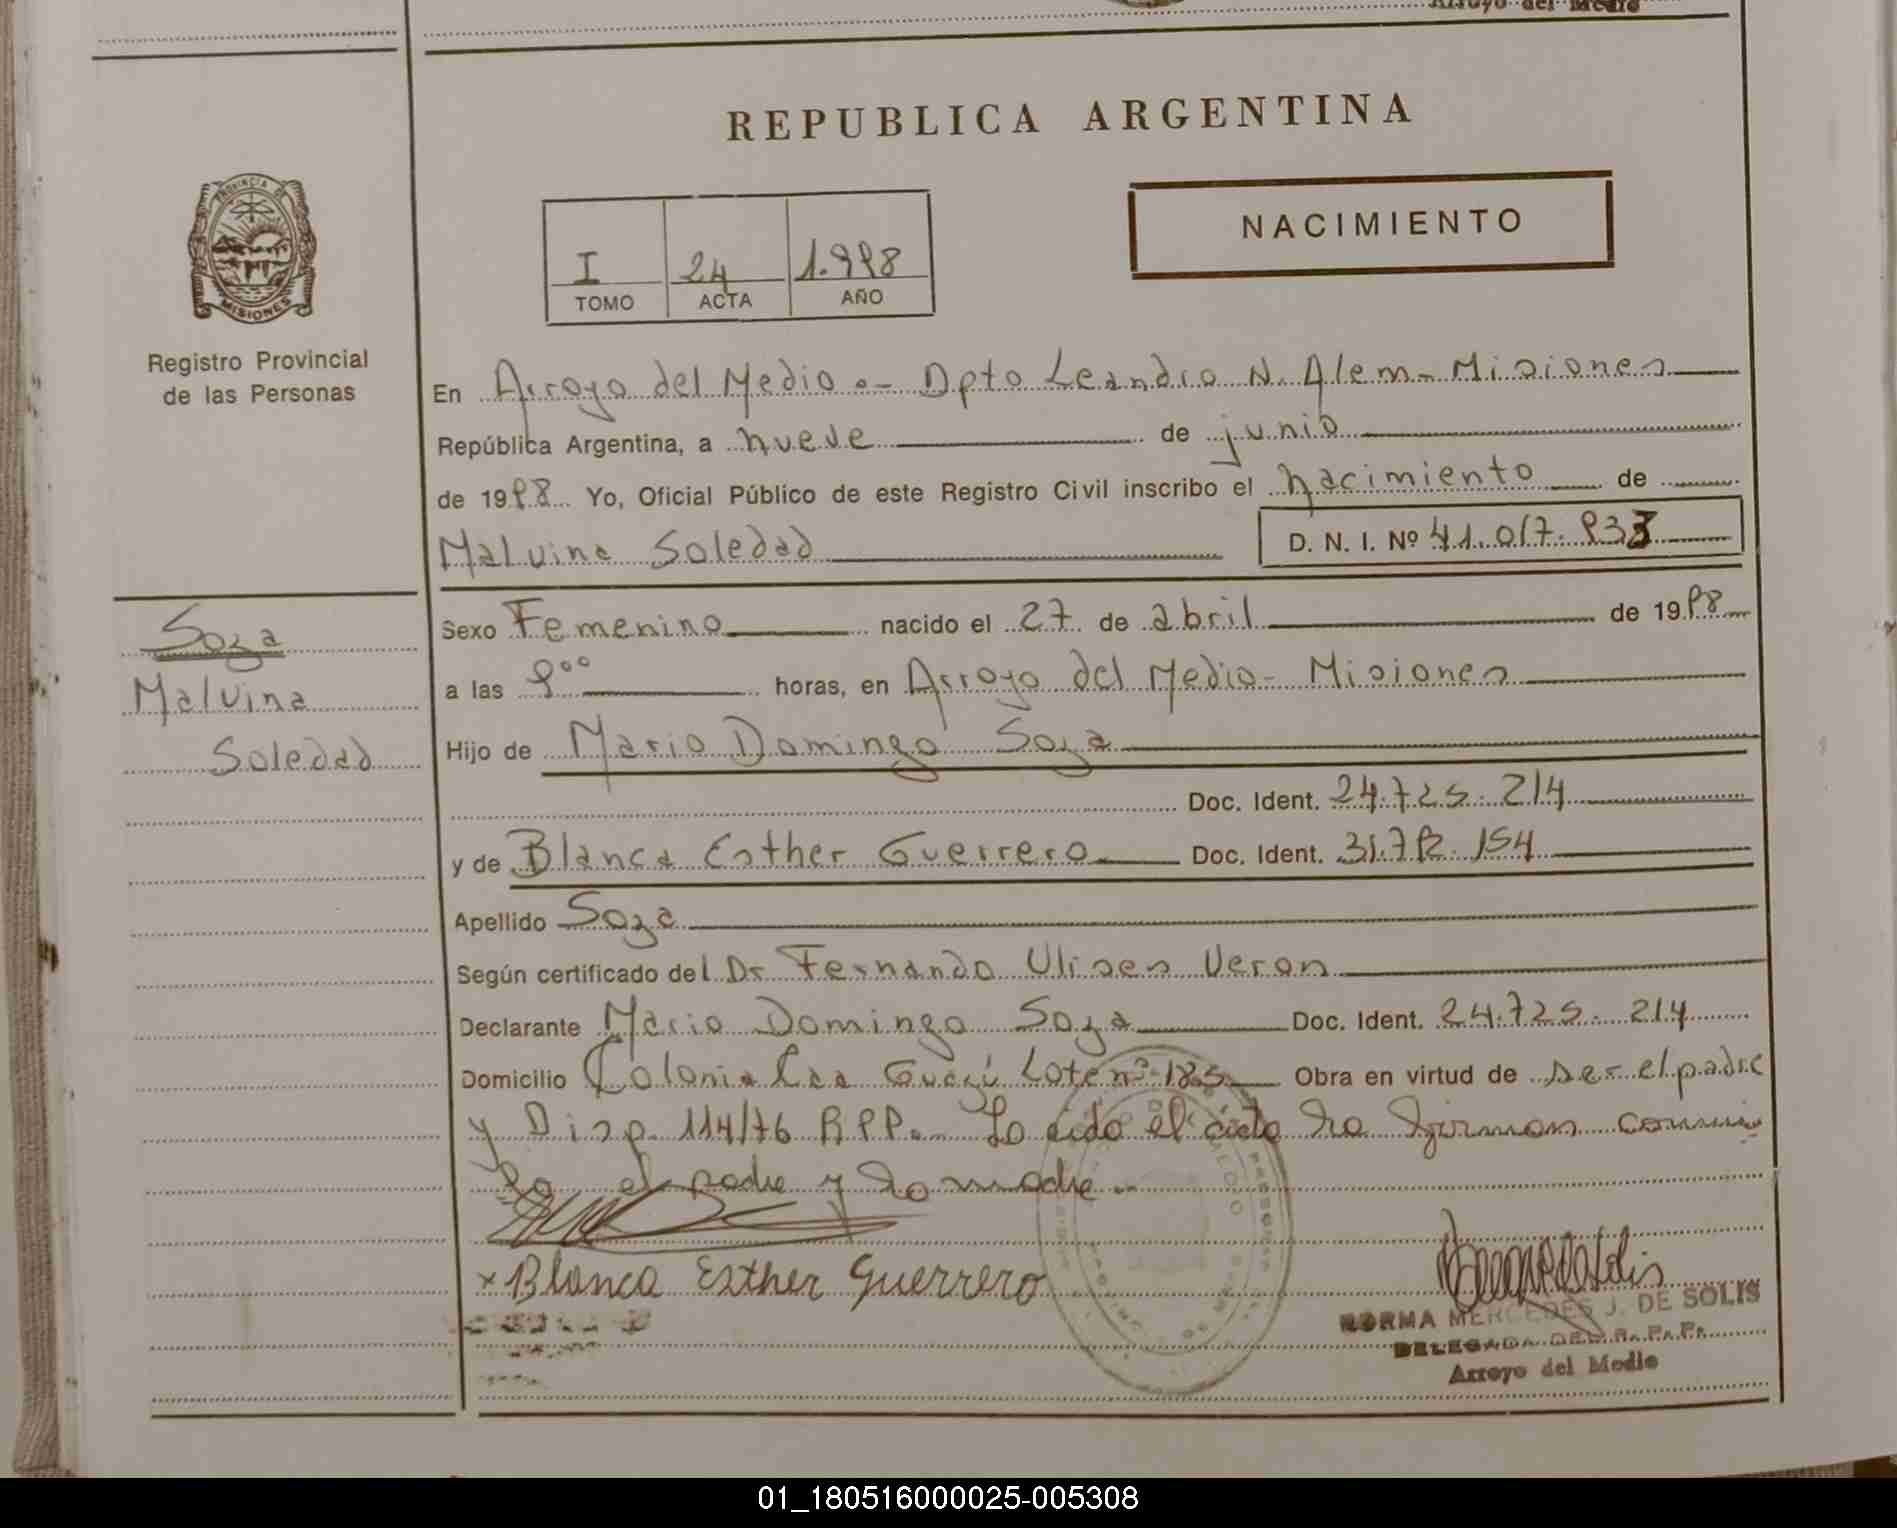 Arroyo del Medio
REPUBLICA ARGENTINA
NACIMIENTO
I 24 1.998
TOMO ACTA AÑO
PROVINCIA DE
MISIONES
Registro Provincial
de las Personas
En Arroyo del Medio.- Dpto Leandro N. Alem - Misiones
República Argentina, a nueve de junio
de 1998 Yo, Oficial Público de este Registro Civil inscribo el nacimiento de
Malvina Soledad D. N. I. Nº 41.017.933
Soza
Malvina
Soledad
Sexo Femenino nacido el 27 de abril de 1998
a las 9⁰⁰ horas, en Arroyo del Medio - Misiones
Hijo de Mario Domingo Soza
Doc. Ident. 24.725.214
y de Blanca Esther Guerrero Doc. Ident. 31.792.154
Apellido Soza
Según certificado del Dr Fernando Ulises Veron
Declarante Mario Domingo Soza Doc. Ident. 24.725.214
Domicilio Colonia Caa Guazú Lote nº 185 Obra en virtud de ser el padre
y Disp. 114/76 RPP.- Leida el acta la firman conmi
go el padre y la madre.-
x Blanca Esther Guerrero
NORMA MERCEDES J. DE SOLIS
DELEGADA DEL R. P. P.
Arroyo del Medio
01_180516000025-005308